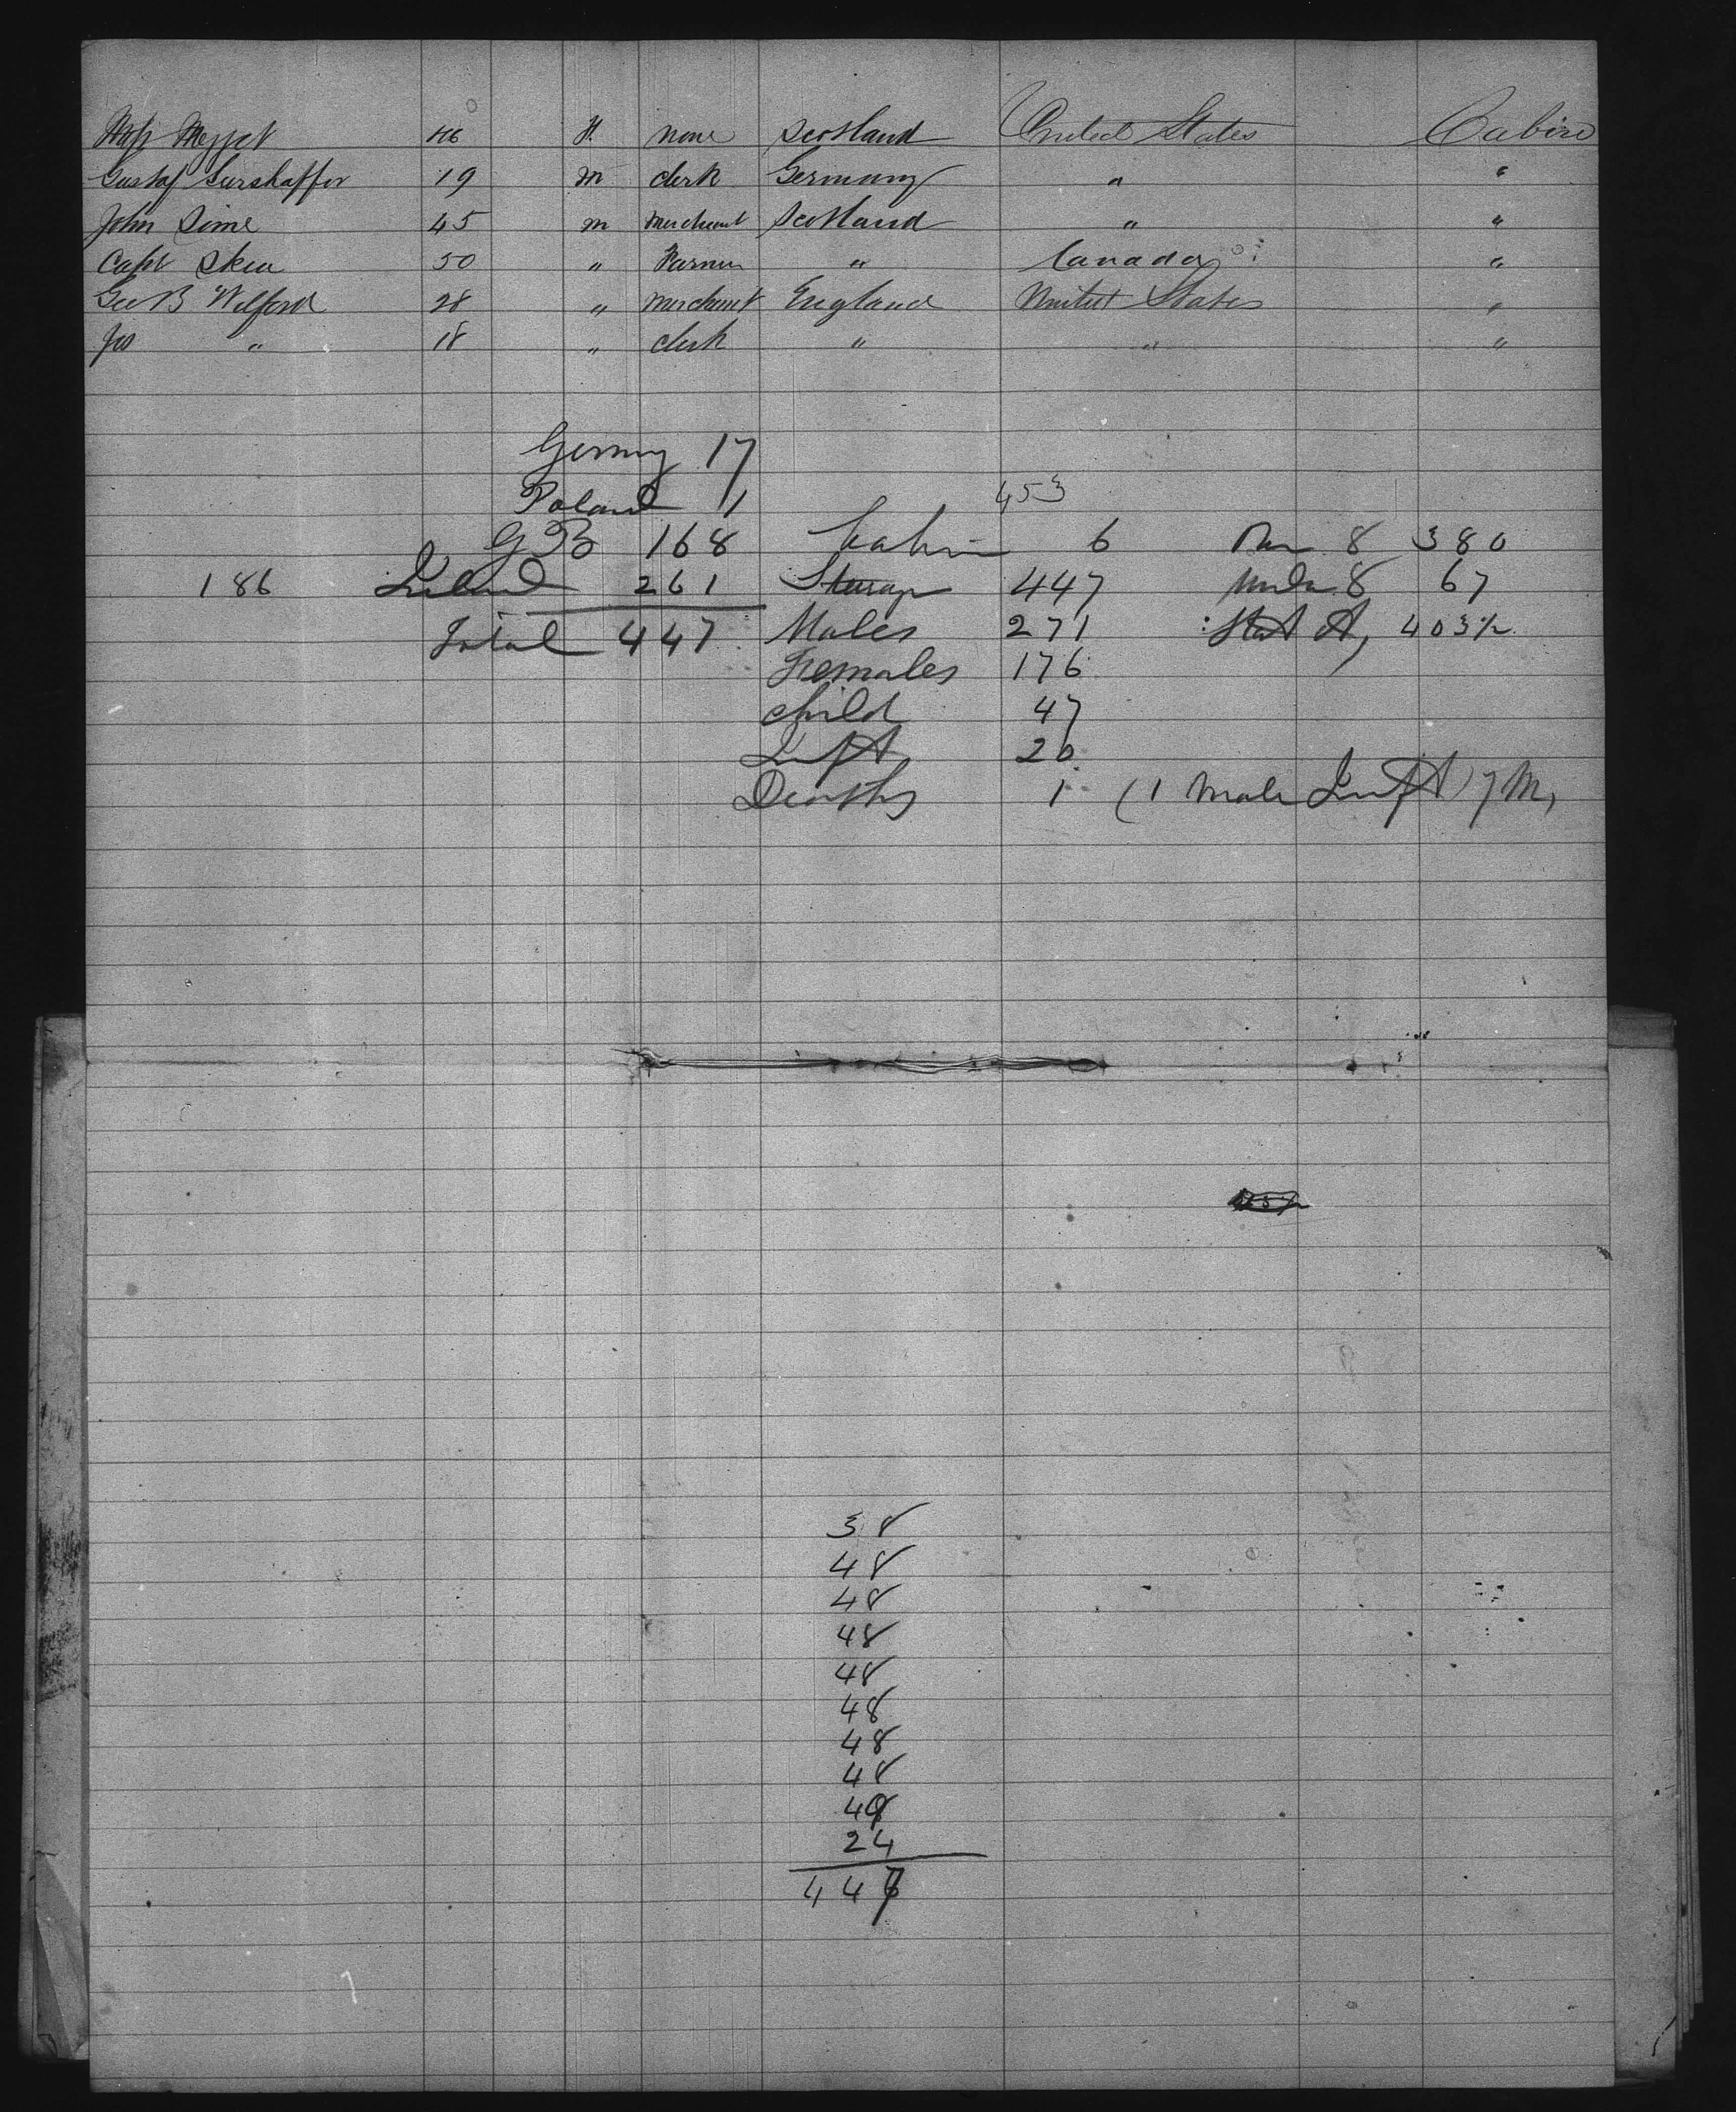 Miss Meffet 46 F. none Scotland United States Cabin
Gustaf Surshaffer 19 m clerk Germany " "
John Sime 45 m merchant Scotland " "
Capt Skea 50 " Farmer " Canada "
Geo B Welford 28 " merchant England United States "
Jos " 18 " clerk " " "
Germy 17
Poland 1
453
G B 168 Cabin 6 Over 8 380
186 Ireland 261 Steerage 447 under 8 67
Total 447 Males 271 Stat A, 403½
Females 176
Child 47
Inft 20
Deaths 1 (1 male Inft) 7 M,
38
48
48
48
48
48
48
48
49
24
447